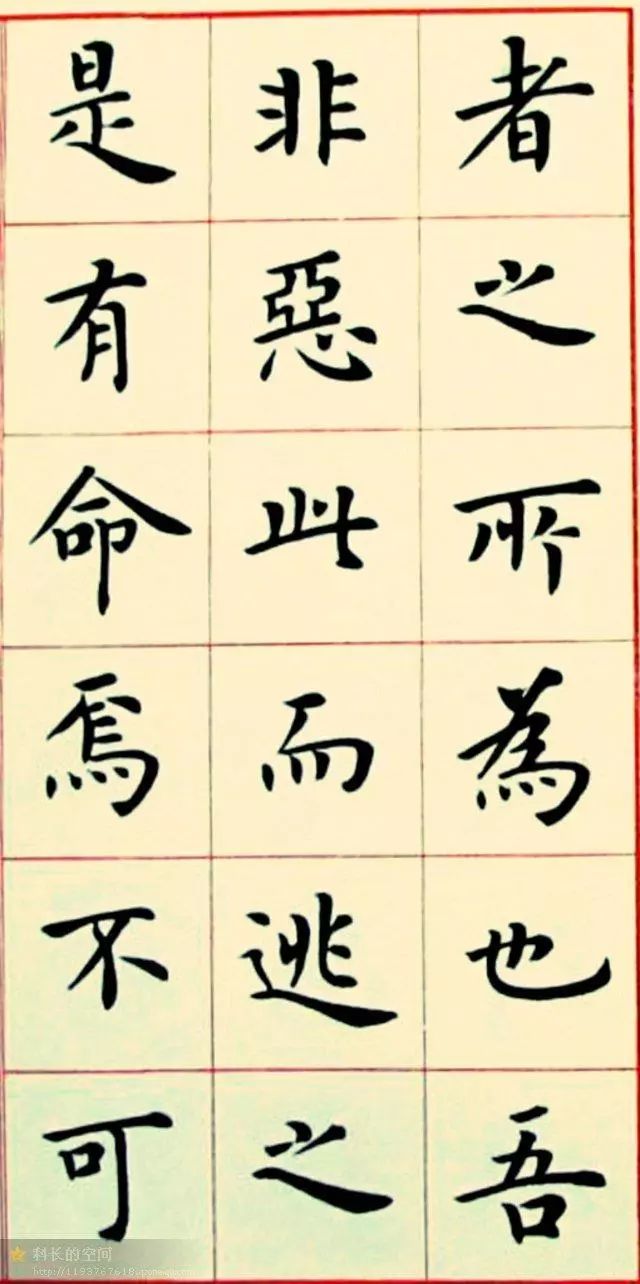 者之所為也吾
非惡此而逃之
是有命焉不可
科长的空间
http://1193767618.qzone.qq.com